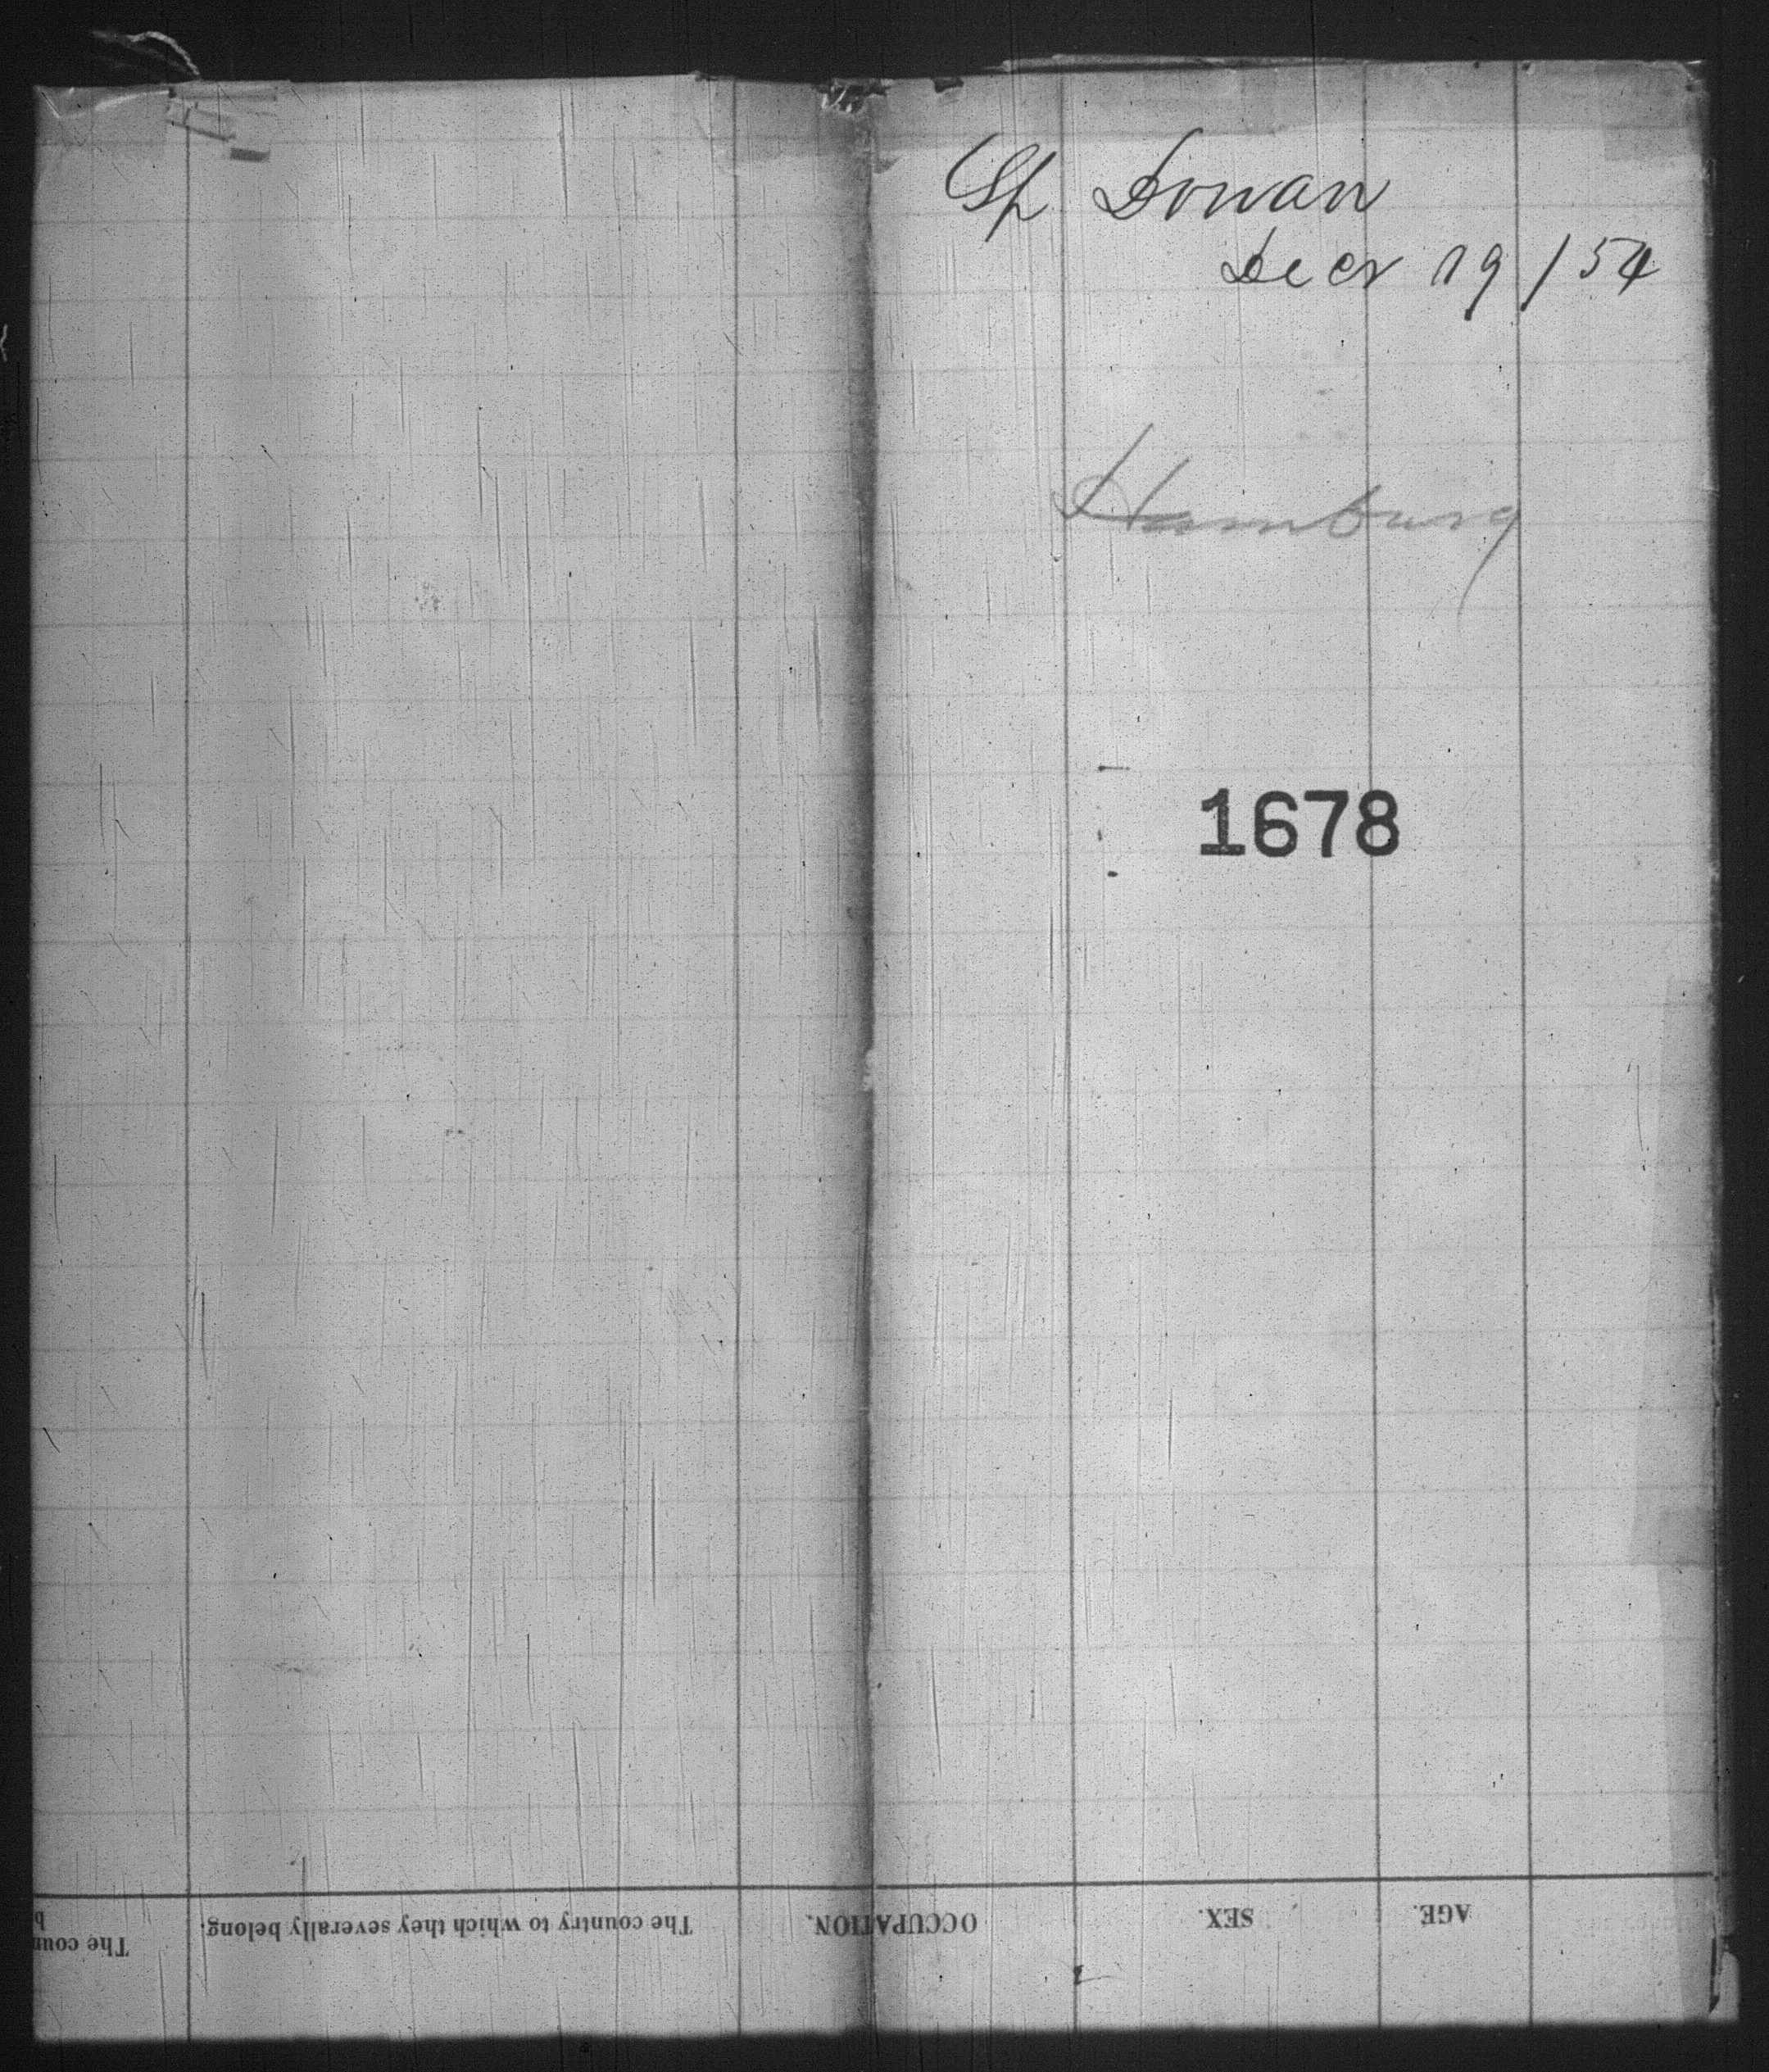 Sh Donau
Decr 19/54
Hamburg
1678
AGE.
SEX.
OCCUPATION.
The country to which they severally belong.
The coun